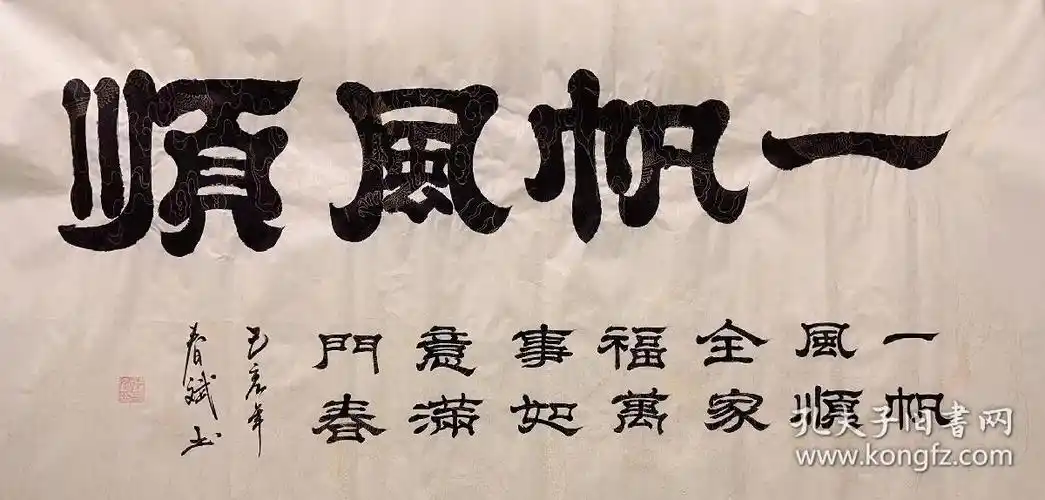 一帆風順
一帆
風順
全家
福萬
事如
意滿
門春
己亥年
春斌书
孔夫子旧书网
www.kongfz.com